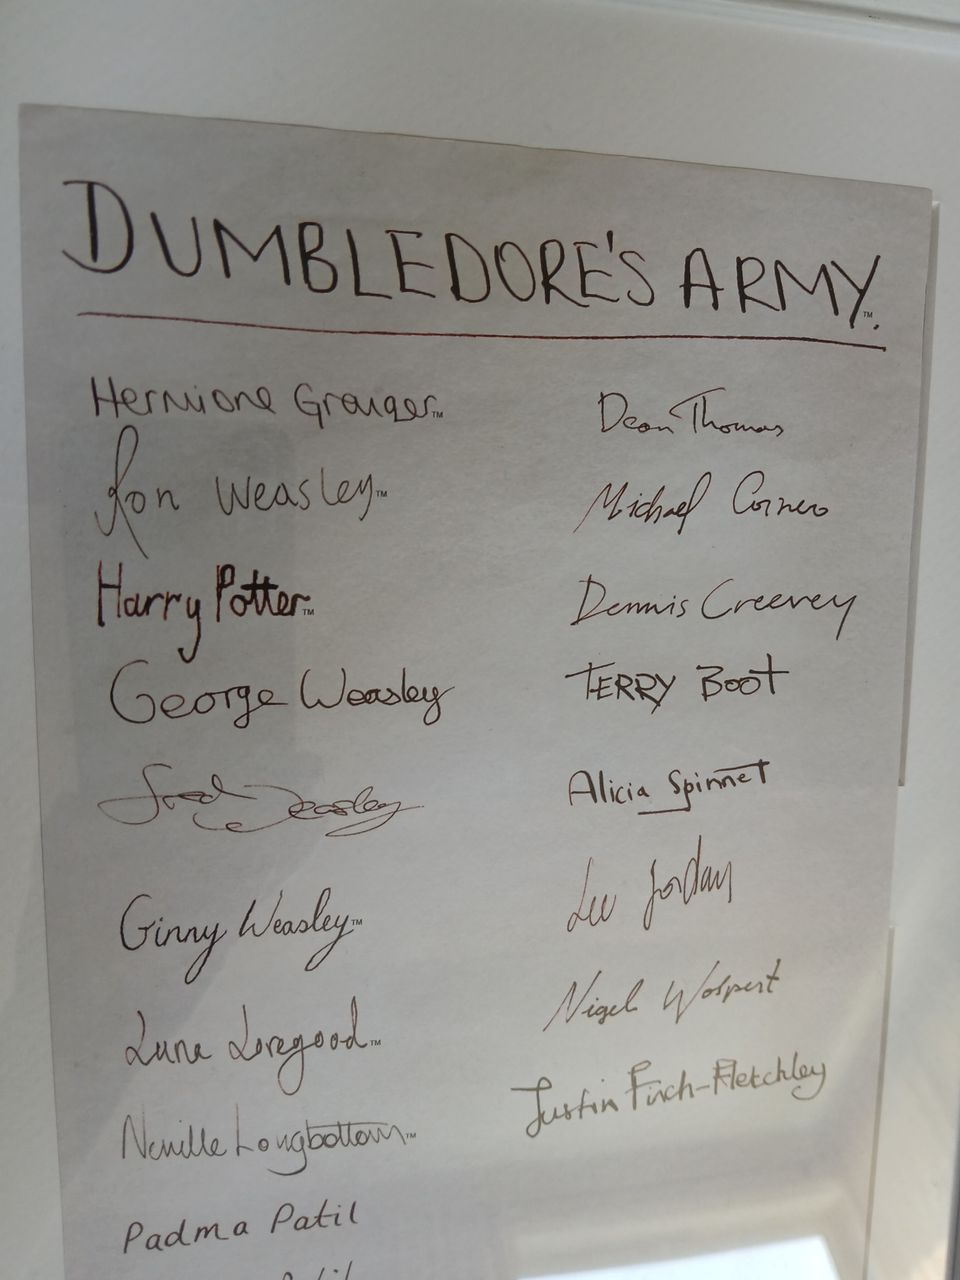 DUMBLEDORE'S ARMY.™
Hermione Granger™
Ron Weasley™
Harry Potter™
George Weasley
Fred Weasley
Ginny Weasley™
Luna Lovegood™
Neville Longbottom™
Padma Patil
Dean Thomas
Michael Corner
Dennis Creevey
TERRY BOOT
Alicia Spinnet
Lee Jordan
Nigel Wolpert
Justin Finch-Fletchley